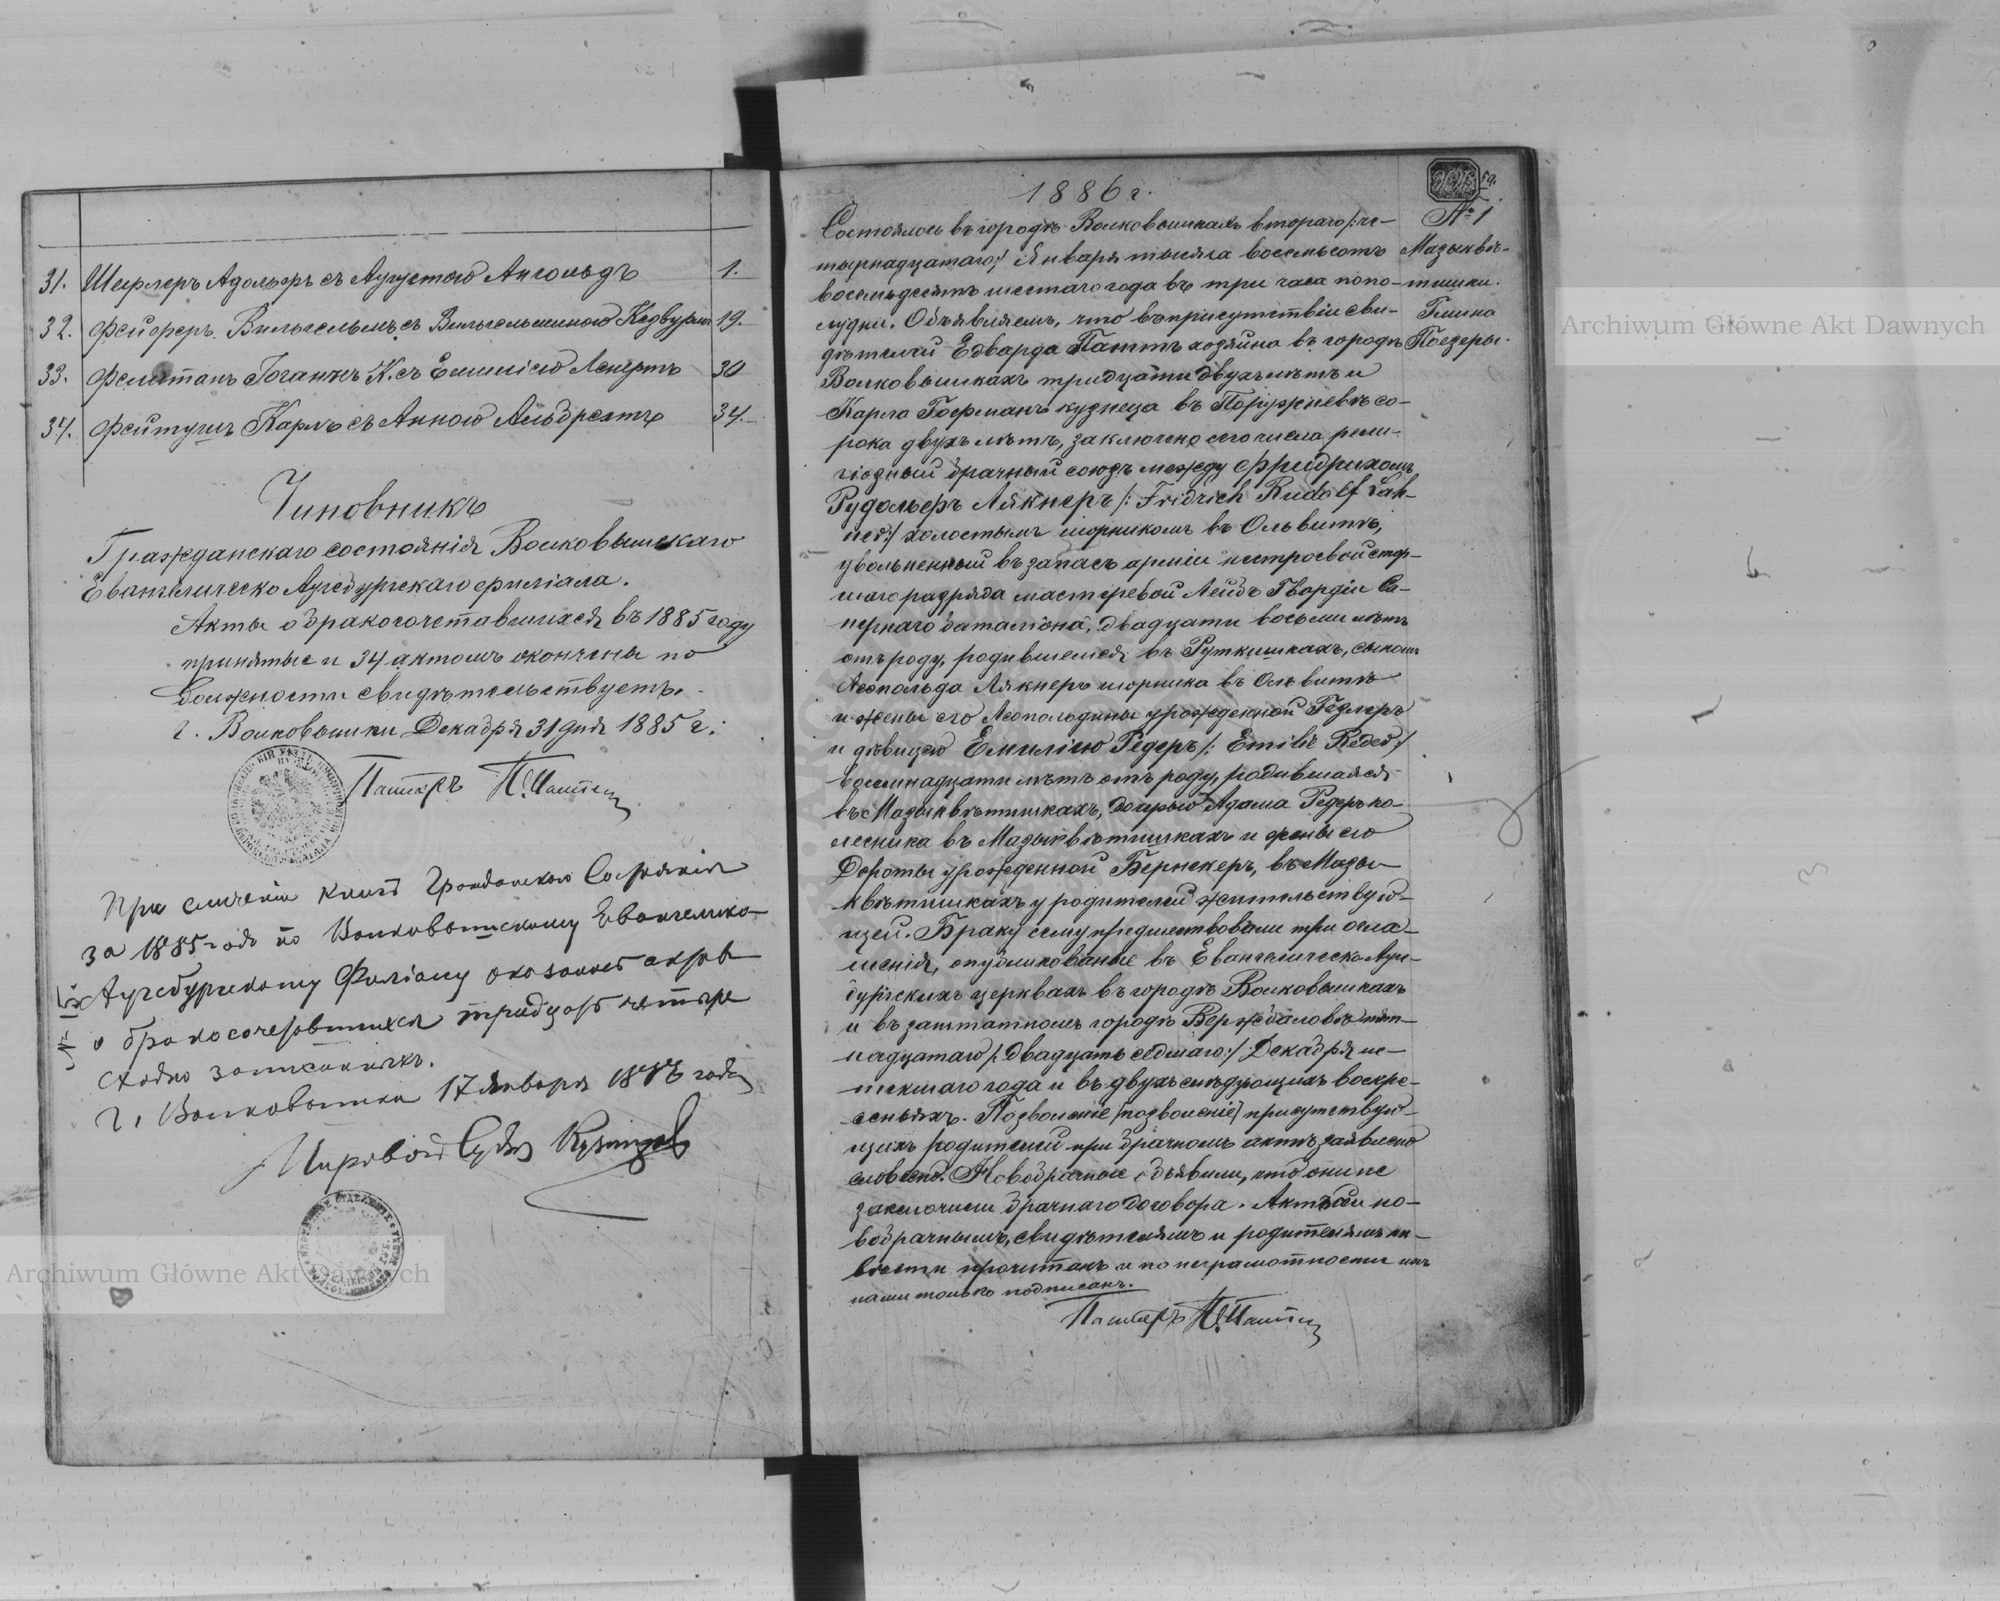 31. Шефлеръ Адольфъ съ Августою Ангольдъ 1.
32. Фейферъ Вильгельмъ съ Вильгельминою Кедвурмъ 19.
33. Фельтманъ Іоганъ К. съ Емиліею Ленертъ 30
34. Фейтугъ Карлъ съ Анною Альбрехтъ 34.
Чиновникъ
Гражданскаго состоянія Волковышскаго
Евангелическо Аугсбургскаго филіала.
Акты о бракосочетавшихся въ 1885 году
принятые и 34 актомъ окончены по
должности свидѣтельствуетъ.
г. Волковышки Декабря 31 дня 1885 г.
Пасторъ
При сличеніи книгъ Гражданского Состоянія
за 1885 годъ по Волковышскому Евангелико
Аугсбургскому Филіалу оказалось актовъ
о бракосочетавшихся тридцать четыре
сходно записанныхъ.
Г. Волковышки 17 Января 1886 года
Мировой Судья
1886 г.
59.
№ 1
Мазыквѣ-
тишки.
Гмина
Поезеры.
Состоялось въ городѣ Волковышкахъ втораго /:че-
тырнадцатаго:/ Января тысяча восемьсотъ
восемьдесятъ шестаго года въ три часа попо-
лудни. Объявляемъ, что въ присутствіи сви-
дѣтелей Едварда Паттъ хозяина въ городѣ
Волковышкахъ тридцати двухъ лѣтъ и
Карла Гофманъ кузнеца въ со-
рока двухъ лѣтъ, заключено сего числа рели-
гіозный брачный союзъ между Фридрихомъ
Рудольфъ Лякнеръ /: Fridrich Rudolf Läk-
ner:/ холостымъ шорникомъ въ Ольвитѣ,
уволенный въ запасъ арміи нестроевой стар-
шаго разряда мастеревой Лейбъ Гвардіи Са-
пернаго баталіона, двадцати восьми лѣтъ
отъ роду, родившемся въ Руткишкахъ, сыномъ
Леопольда Лякнеръ шорника въ Ольвитѣ
и жены его Леопольдины урожденной Гезлеръ
и дѣвицею Емиліею Редеръ /: Emilie Reder:/
восемнадцати лѣтъ отъ роду, родившаяся
въ Мазыквѣтишкахъ, дочерью Адама Редеръ ко-
лесника въ Мазыквѣтишкахъ и жены его
Дороты урожденной Бернекеръ, въ Мазы-
квѣтишкахъ у родителей жительствую-
щей. Браку сему предшествовали три огла-
шенія, опубликованые въ Евангелическо Аугс-
бургскихъ церквахъ въ городѣ Волковышкахъ
и въ заштатномъ городѣ Вержболовѣ пят-
надцатаго /: двадцать седмаго:/ Декабря ис-
текшаго года и въ двухъ слѣдующихъ воскре-
сеньяхъ. Позволеніе [позволеніе] присутствую-
щихъ родителей при брачномъ актѣ заявлено
словесно. Новобрачные объявили, что они не
заключили брачнаго договора. Актъ сей но-
вобрачнымъ, свидѣтелямъ и родителямъ не-
вѣсты прочитанъ и по неграмотности ихъ
нами только подписанъ.
Пасторъ
Archiwum Główne Akt Dawnych
Archiwum Główne Akt Dawnych